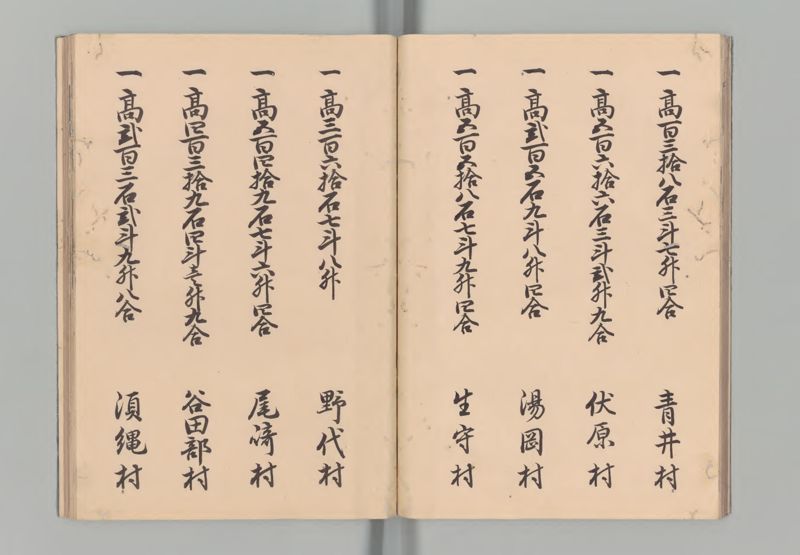 一高百三拾八石三斗七升四合 青井村
一高五百六拾六石三斗弐升九合 伏原村
一高弐百五石九斗八升四合 湯岡村
一高五百五拾八石七斗九升四合 生守村
一高三百六拾石七斗八升 野代村
一高五百四拾九石七斗六升四合 尾崎村
一高四百三拾九石四斗壱升九合 谷田部村
一高弐百三石弐斗九升八合 須縄村